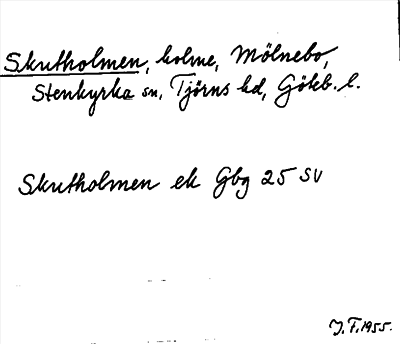 Skutholmen, holme, Mölnebo,
Stenkyrka sn, Tjörns hd, Götebr. l.
Skutholmen ek Gbg 25 SV
J.F. 1955.